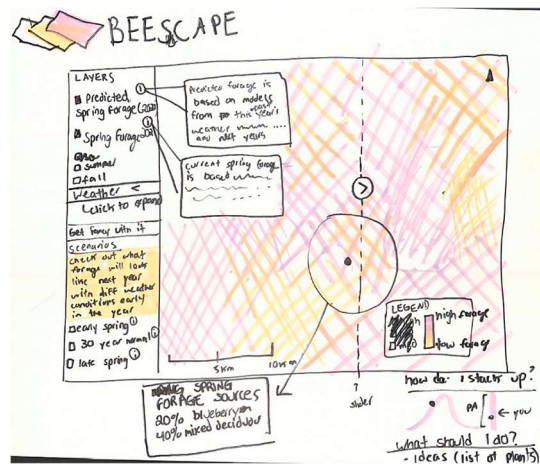 BEESCAPE
LAYERS
Predicted
Spring forage
Spring Forage
summer
fall
Weather <
click to expand
Get fancy with it
scenarios
check out what
forage will look
like next year
with diff weather
conditions early
in the year
early spring i
30 year normal i
late spring i
Predicted forage is
based on models
from this year's
weather
and next years
current spring forage
is based
5km
10km
slider
LEGEND
high forage
low forage
SPRING
FORAGE SOURCES
20% blueberry
40% mixed deciduous
how do i stack up?
PA
you
what should I do?
- ideas (list of plants)